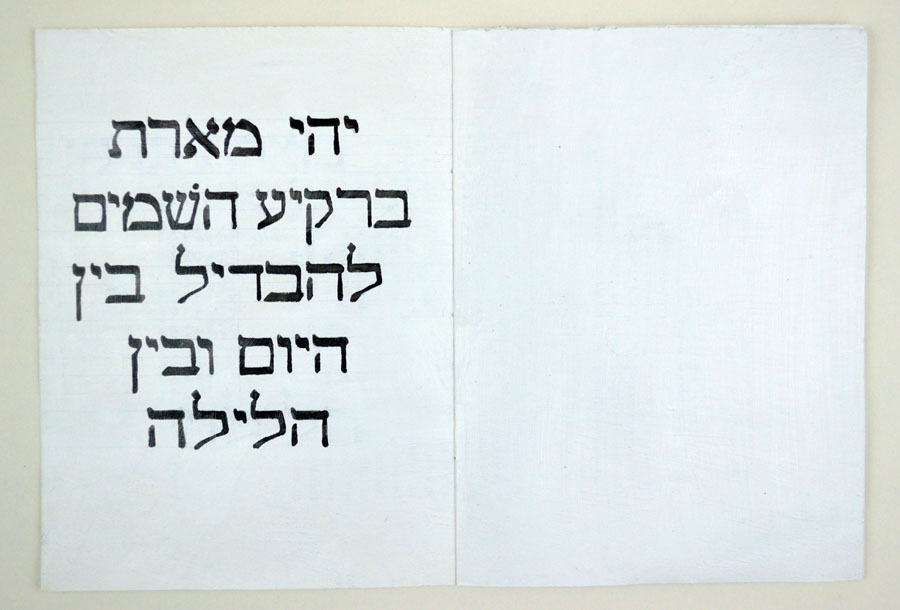 יהי מארת
ברקיע השׁמים
להבדיל בין
היום ובין
הלילה